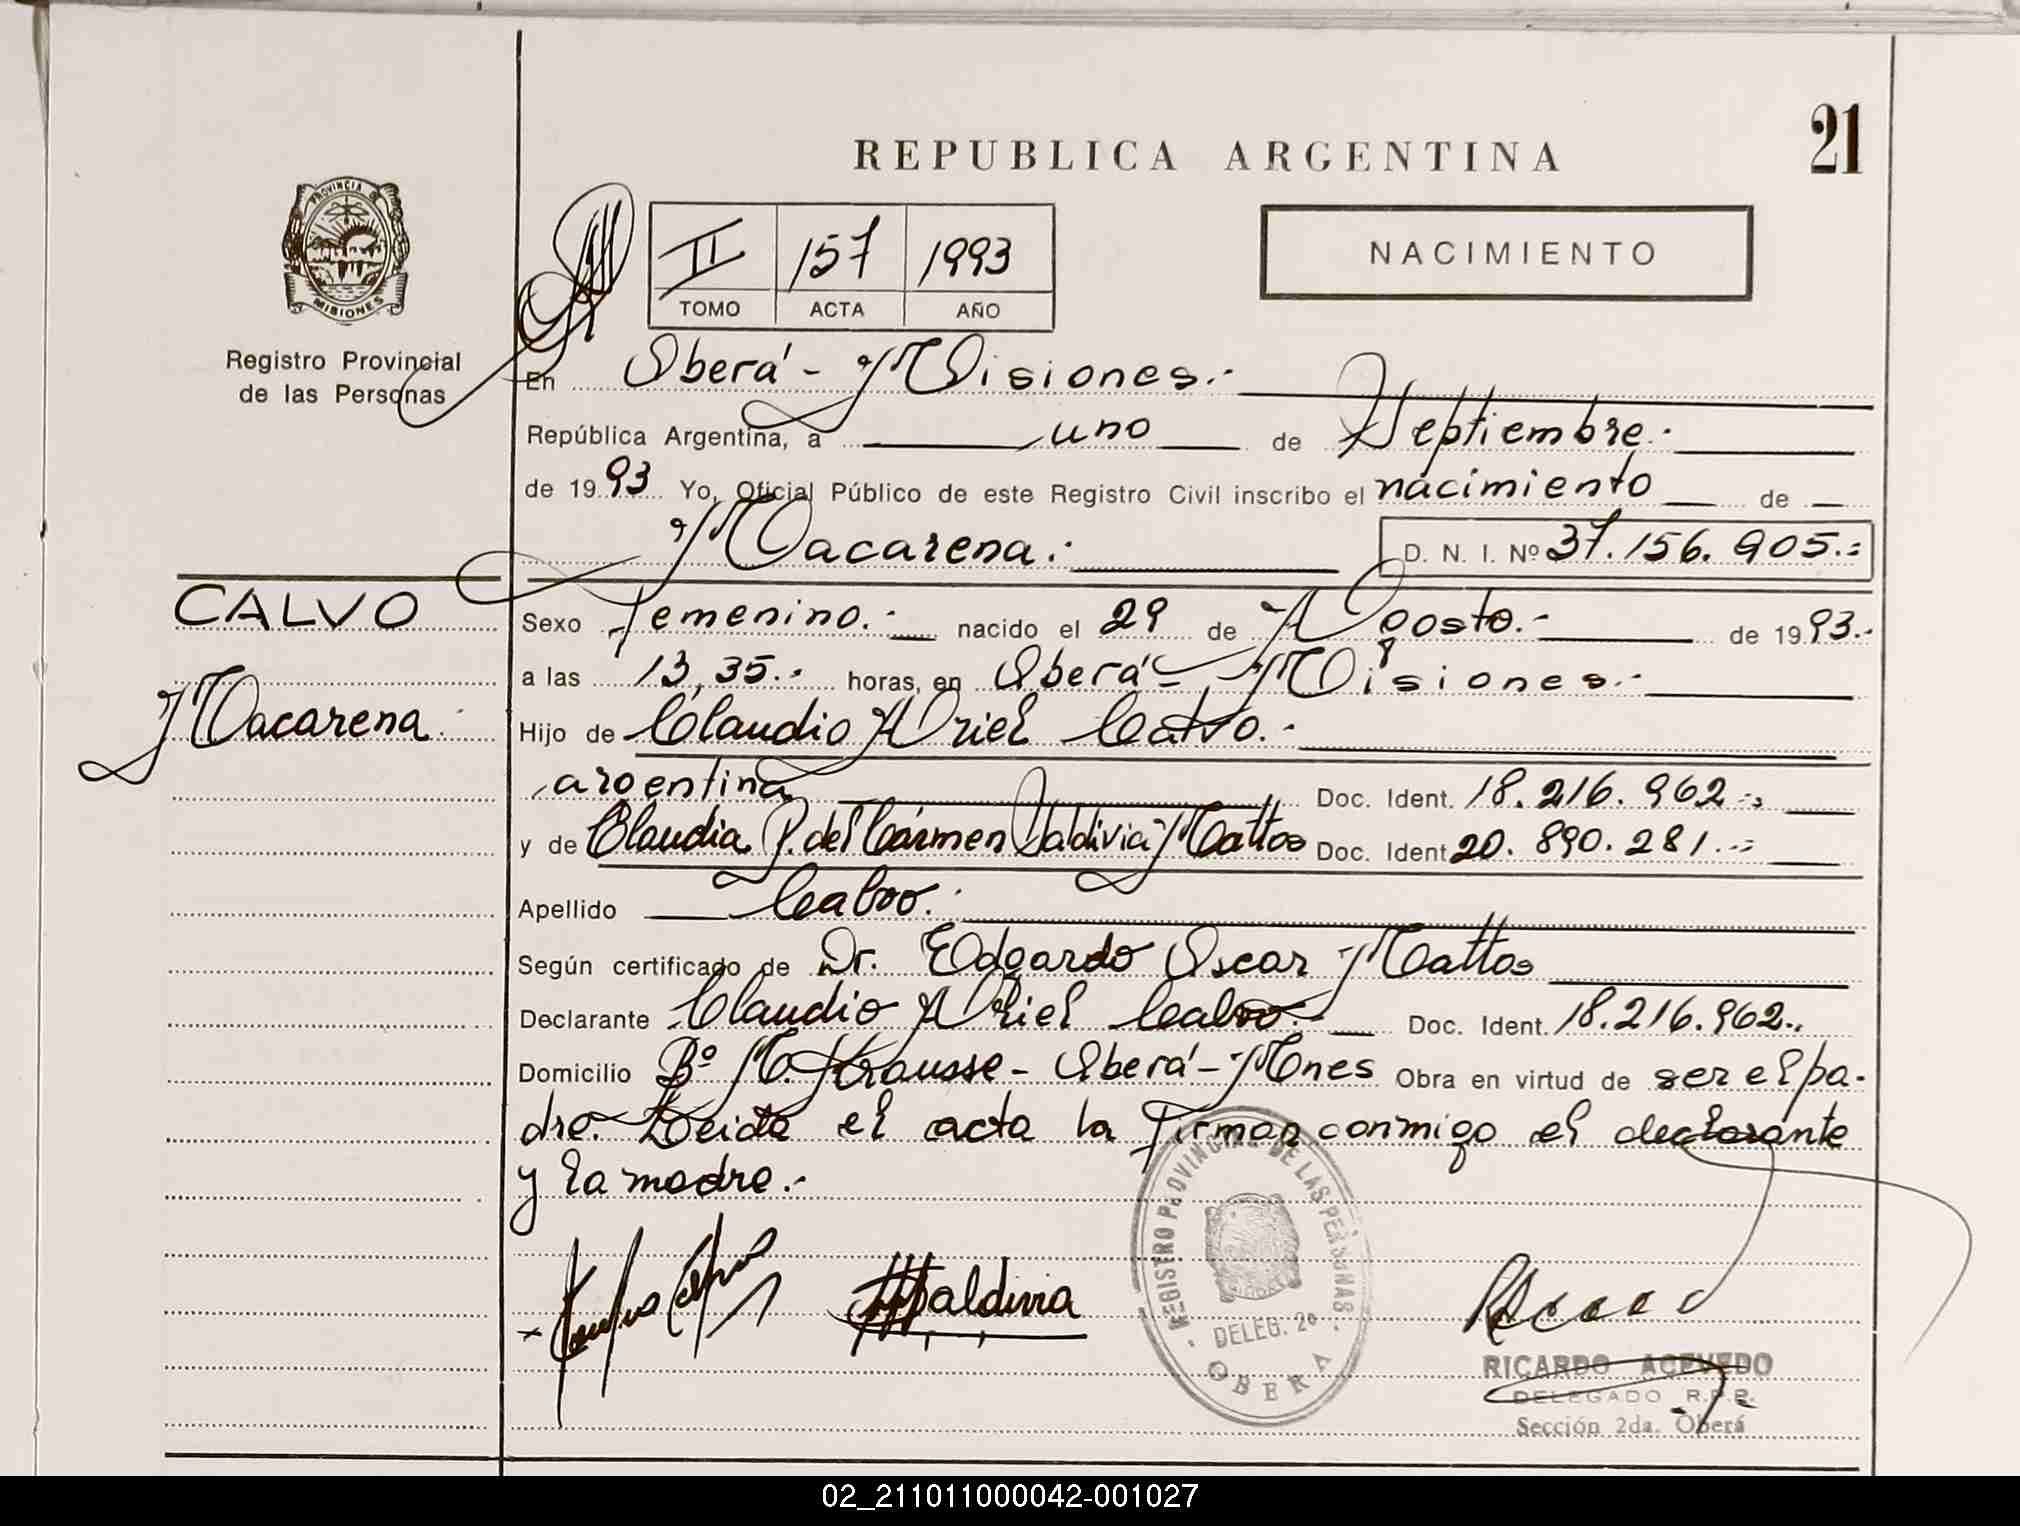 REPUBLICA ARGENTINA
21
PROVINCIA DE
MISIONES
Registro Provincial
de las Personas
II 157 1993
TOMO ACTA AÑO
NACIMIENTO
En Oberá - Misiones.-
República Argentina, a uno de Septiembre.-
de 1993 Yo, Oficial Público de este Registro Civil inscribo el nacimiento de
Macarena.- D. N. I. Nº 37.156.905.-
CALVO
Macarena.
Sexo femenino.- nacido el 29 de Agosto.- de 1993.-
a las 13,35.- horas, en Oberá - Misiones.-
Hijo de Claudio Ariel Calvo.-
argentina Doc. Ident. 18.216.962.-
y de Claudia P. del Cármen Valdivia Mattos Doc. Ident. 20.890.281.-
Apellido Calvo.-
Según certificado de Dr. Edgardo Oscar Mattos
Declarante Claudio Ariel Calvo.- Doc. Ident. 18.216.962.-
Domicilio Bº M. Krausse - Oberá - Mnes Obra en virtud de ser el pa-
dre. Leida el acta la firman conmigo el declarante
y la madre.-
Valdivia
REGISTRO PROVINCIAL DE LAS PERSONAS
DELEG. 2ª
OBERA
RICARDO ACEVEDO
DELEGADO R.P.P.
Sección 2da. Oberá
02_211011000042-001027